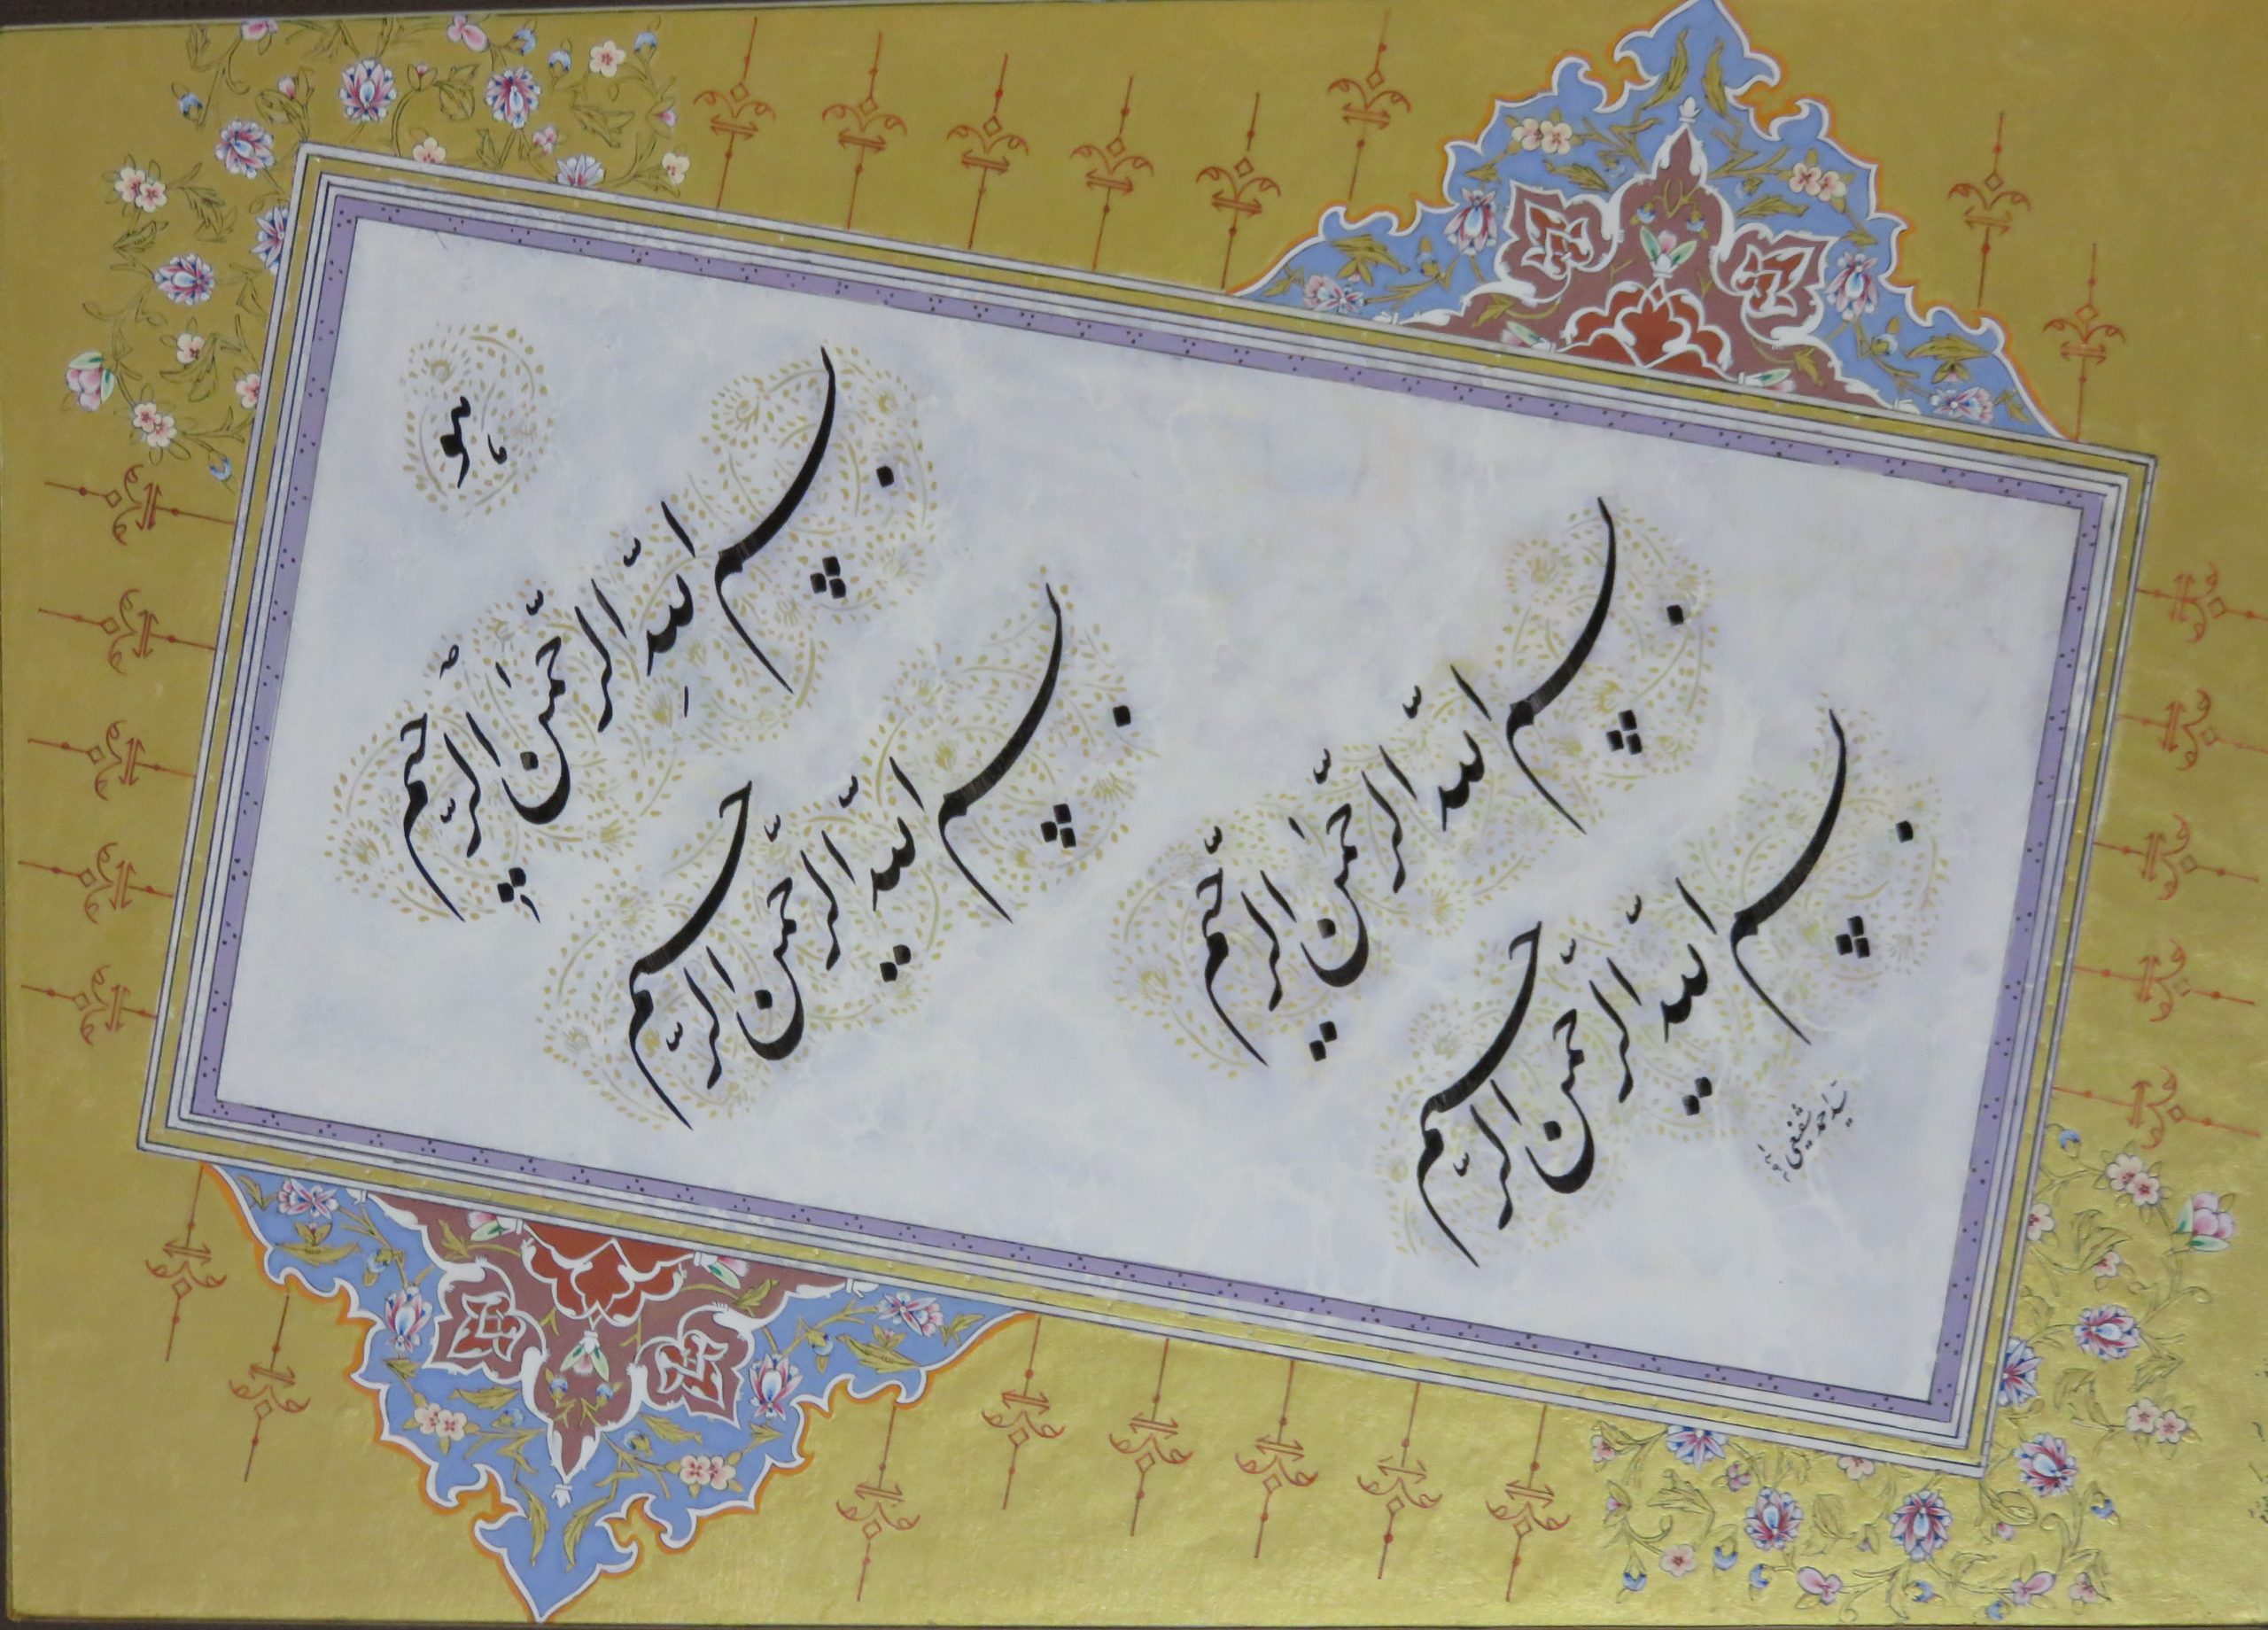 هو
بسم الله الرحمن الرحیم
بسم الله الرحمن الرحیم
بسم الله الرحمن الرحیم
بسم الله الرحمن الرحیم
سید احمد شفیعی